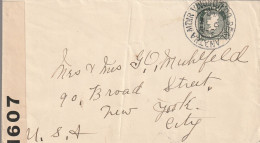 1607
Mrs & Mrs G. Muhlfeld
90, Broad Street.
New York.
City
U.S.A